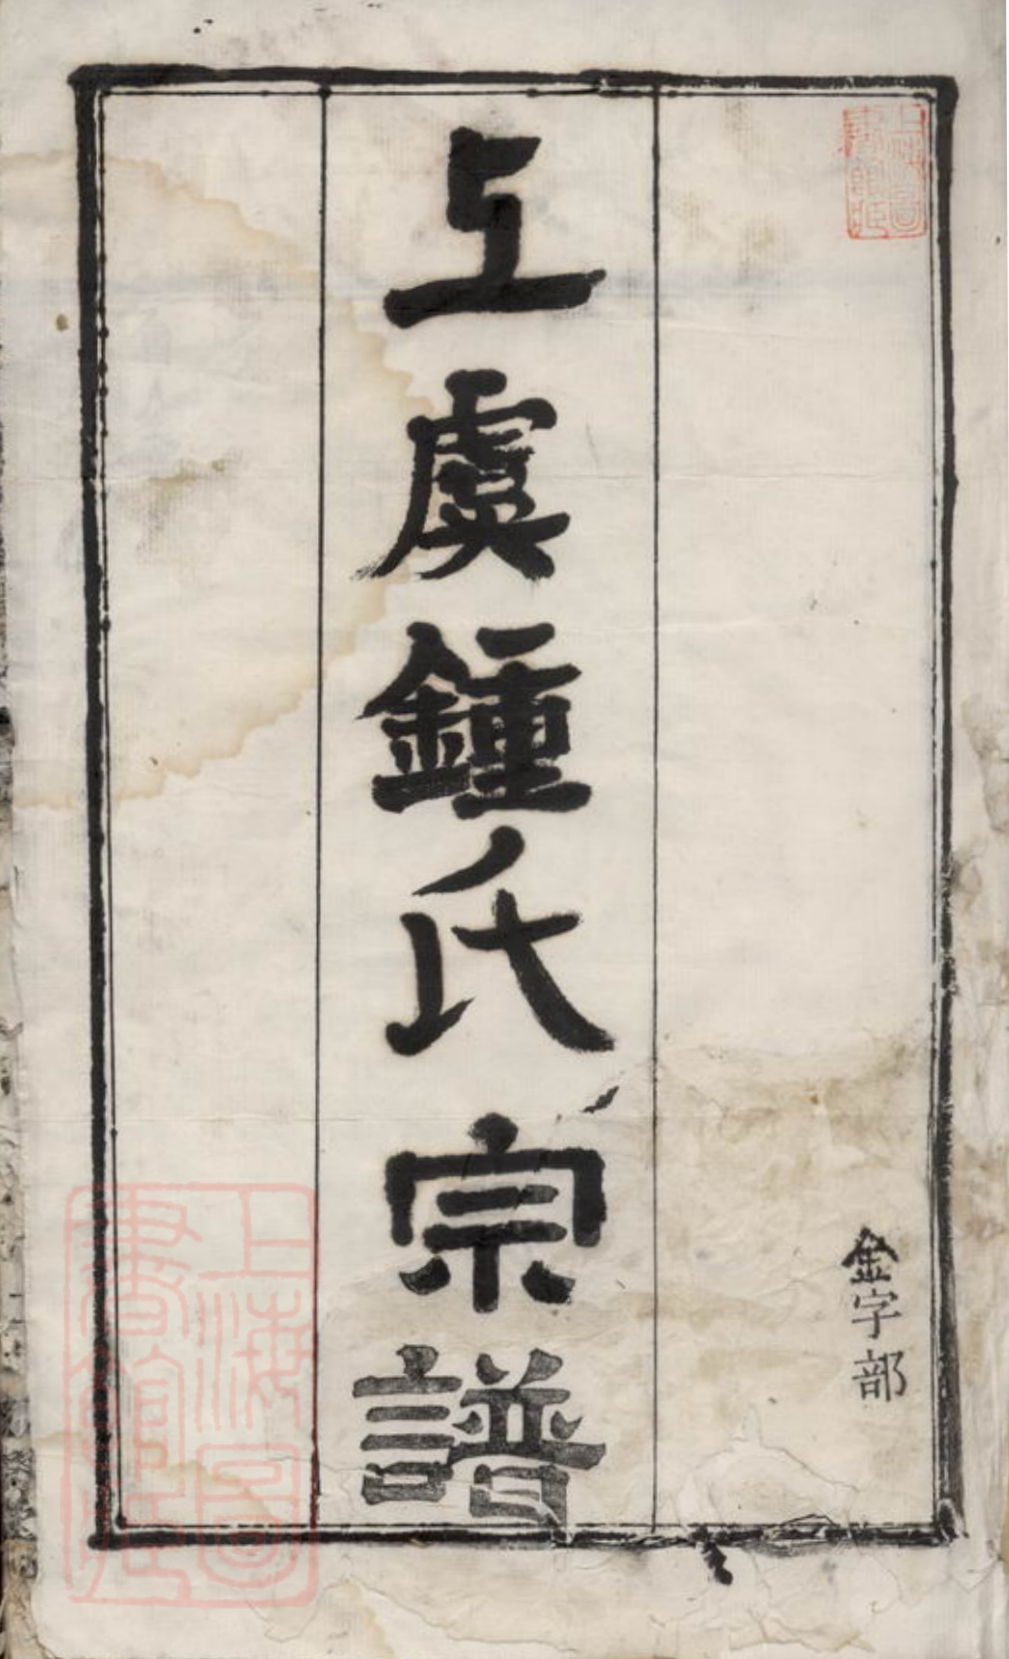 上海圖
書館藏
金字部
上虞鍾氏宗譜
上海圖
書館藏